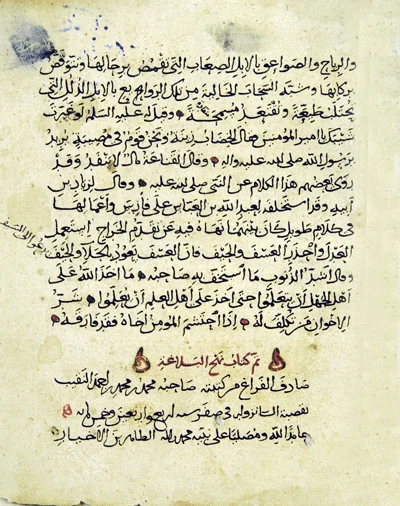 والرياح والصواعق بالابل الصعاب التي تقمص برحالها وتتوقص
بركبانها وشبه السحاب الخالية من تلك الروائع بالابل الذلل التي
تحتلب طيعة وتقتعد مسمحة وقيل له عليه السلم لو غيرت
شيبك يا امير المومنين فقال الخضاب زينة ونحن قوم في مصيبة يريد
برسول الله صلى الله عليه واله وقال القناعة مال لا ينفد وقد
روى بعضهم هذا الكلام عن النبي صلى الله عليه وقال لزياد بن
ابيه وقد استخلفه لعبد الله بن العباس على فارس واعمالها
في كلام طويل كان بينهما نهاه فيه عن تقديم الخراج استعمل
العدل واحذر العسف والحيف فان العسف يعود بالجلاء والحيف
يدعو الى السيف
وقال اشد الذنوب ما استخف به صاحبه ما اخذ الله على
اهل الجهل ان يتعلموا حتى اخذ على اهل العلم ان يعلموا شر
الاخوان من تكلف له اذا احتشم المومن اخاه فقد فارقه
تم كتاب نهج البلاغة
صادف الفراغ من كتبته صاحبه محمد بن محمد بن احمد النقيب
بقصبة السانزوار في صفر سنه اربع واربعين وخمس مايه
حامدا لله ومصليا على نبيه محمد واله الطاهرين الاخيار